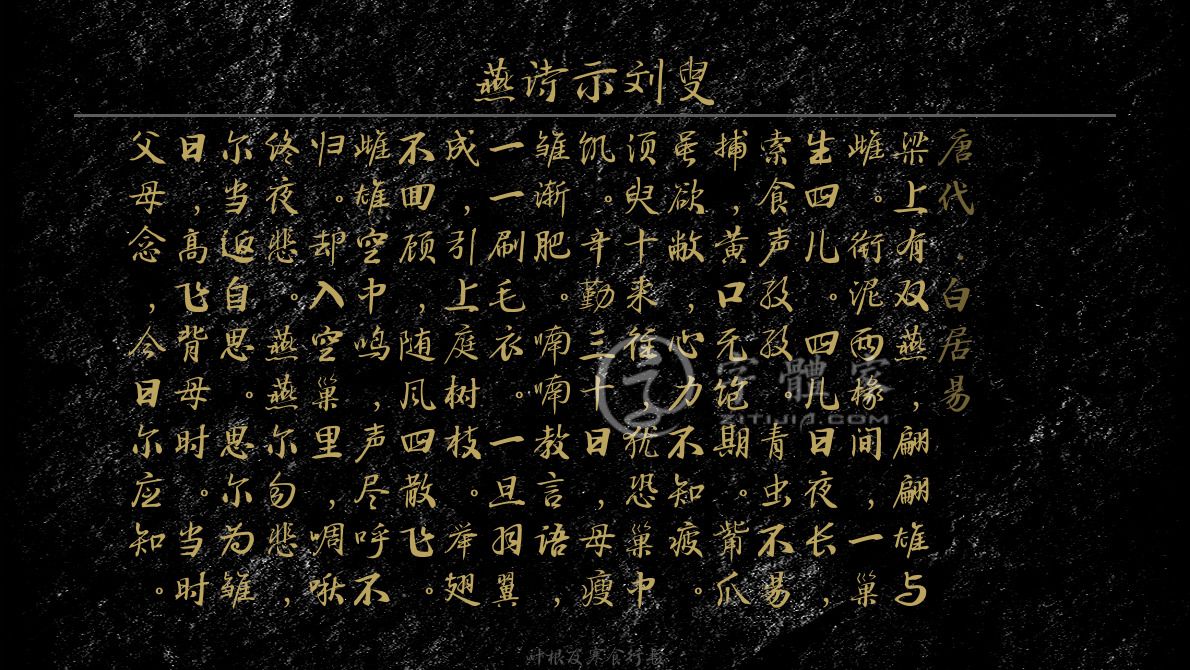 燕诗示刘叟
唐代·白居易
梁上有双燕，翩翩雄与
雌。衔泥两椽间，一巢
生四儿。四儿日夜长，
索食声孜孜。青虫不易
捕，黄口无饱期。觜爪
虽欲敝，心力不知疲。
须臾十来往，犹恐巢中
饥。辛勤三十日，母瘦
雏渐肥。喃喃教言语，
一一刷毛衣。一旦羽翼
成，引上庭树枝。举翅
不回顾，随风四散飞。
雌雄空中鸣，声尽呼不
归。却入空巢里，啁啾
终夜悲。燕燕尔勿悲，
尔当返自思。思尔为雏
日，高飞背母时。当时
父母念，今日尔应知。
字體家
ZITIJIA.COM
叶根友寒食行书